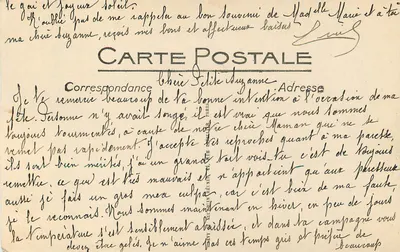 le gai et joyeux soleil.
N'oublie pas de me rappeler au bon souvenir de Mad elle Marie et à toi
ma chère Suzanne, reçois mes bons et affectueux baisers
CARTE POSTALE
Chère Petite Suzanne
Correspondance
Adresse
Je te remercie beaucoup de ta bonne intention à l'occasion de ma
fête. Personne n'y avait songé, il est vrai que nous sommes
toujours tourmentés, à cause de notre chère Maman qui ne se
remet pas rapidement. J'accepte tes reproches quant à ma paresse,
ils sont bien mérités, j'ai un grand tort vois-tu c'est de toujours
remettre, ce qui est très mauvais et n'appartient qu'aux paresseux
aussi je fais un gros mea culpa, car c'est bien de ma faute,
je le reconnais. Nous sommes maintenant en hiver, en peu de jours
la température s'est sensiblement abaissée, et dans ta campagne vous
devez être gelés. Je n'aime pas ces temps gris et préfère de
beaucoup